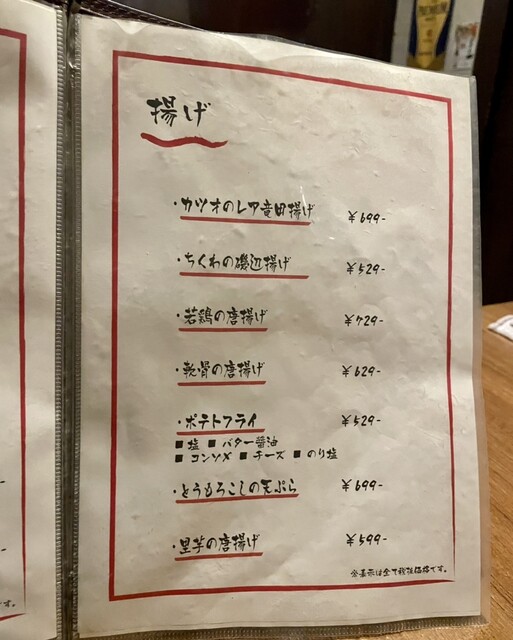 PREMIUM
揚げ
・カツオのレア竜田揚げ ¥699-
・ちくわの磯辺揚げ ¥529-
・若鶏の唐揚げ ¥729-
・軟骨の唐揚げ ¥629-
・ポテトフライ ¥529-
■ 塩 ■ バター醤油
■ コンソメ ■ チーズ ■ のり塩
・とうもろこしの天ぷら ¥699-
・里芋の唐揚げ ¥599-
※表示は全て税抜価格です。
す。